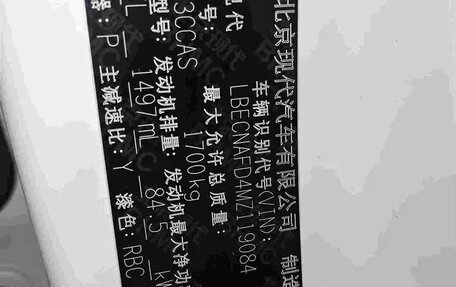 北京现代汽车有限公司 制造
现代 车辆识别代号(VIN): LBECNAFD4MZ119084
号: 最大允许总质量:
3CCAS 1700kg
型号: 发动机排量: 发动机最大净功
L 1497mL 84.5 kW
器: P 主减速比: Y 漆色: RBC